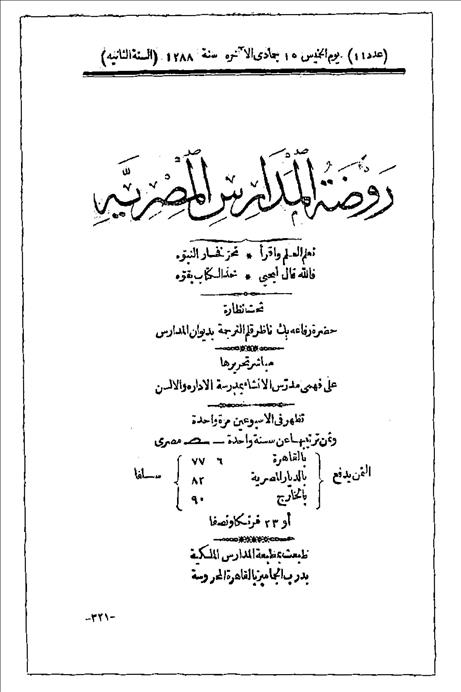 (عدد ١١) يوم الخميس ١٥ جمادى الآخره سنة ١٢٨٨ (السنة الثانيه)
رَوضَةُ المَدَارِسِ المِصْرِيَّه
تعلم العلم واقرأ * تحز نخار النبوه
فالله قال ليحيى * خذ الكتاب بقوه
تحت نظارة
حضرة رفاعه بك ناظر قلم الترجمة بديوان المدارس
مباشر تحريرها
على فهمى مدرس الانشاء بمدرسة الاداره والالسن
تظهر فى الاسبوعين مرة واحدة
وثمن ترتيبها عن سنة واحدة مصرى
الثمن يدفع
بالقاهرة ٦ ٧٧
بالديار المصرية ٨٢
بالخارج ٩٠
سلفا
أو ٢٣ فرنكا ونصفا
طبعت بمطبعة المدارس الملكية
بدرب الجماميز بالقاهرة المحروسة
-٣٢١-